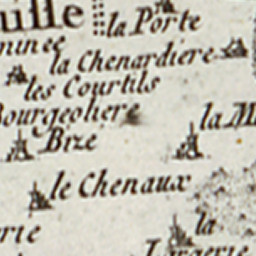 uille
la Porte
minee
la Chenardiere
les Courtils
Bourgeoliere
la M
Bizé
le Chenaux
rte
la
Largerie